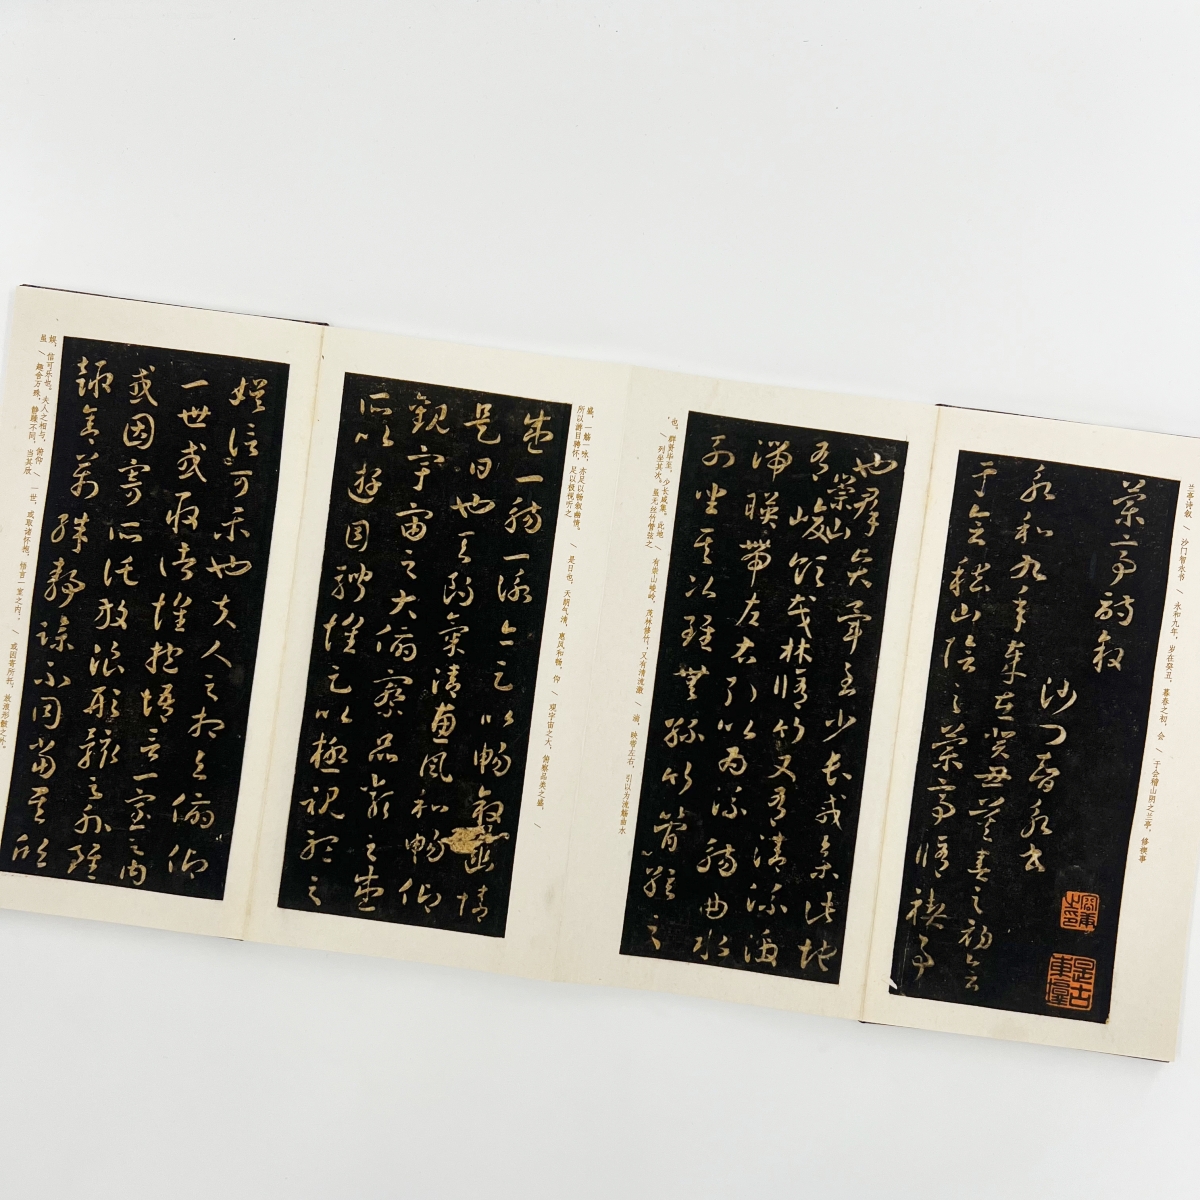 兰亭诗叙 \ 沙门智永书 \ 永和九年，岁在癸丑，暮春之初，会 \ 于会稽山阴之兰亭，修禊事
蘭亭詩叙
沙门智永书
永和九年岁在癸丑暮春之初会
于会稽山阴之蘭亭脩禊事
也群贤畢至少长咸集此地
有崇山峻領茂林脩竹又有清流激
湍暎帶左右引以為流觴曲水
列坐其次雖無絲竹管弦之
也。群贤毕至，少长咸集。此地 \ 有崇山峻岭，茂林修竹，又有清流激 \ 湍，映带左右，引以为流觞曲水
\ 列坐其次。虽无丝竹管弦之
盛，一觞一咏，亦足以畅叙幽情。 \ 是日也，天朗气清，惠风和畅，仰 \ 观宇宙之大，俯察品类之盛， \
所以游目骋怀，足以极视听之
盛一觴一詠亦足以暢叙幽情
是日也天朗氣清惠風和暢仰
觀宇宙之大俯察品類之盛
所以遊目騁懷足以極視聽之
娱信可樂也夫人之相与俯仰
一世或取诸懷抱悟言一室之内
或因寄所託放浪形骸之外雖
趣舍萬殊静躁不同當其欣
娱，信可乐也。夫人之相与，俯仰 \ 一世，或取诸怀抱，悟言一室之内。 \ 或因寄所托，放浪形骸之外。
虽 \ 趣舍万殊，静躁不同，当其欣